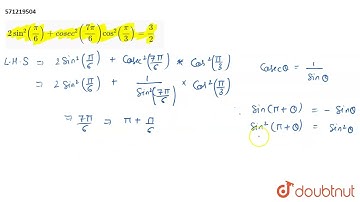 571219504
2 sin²(π/6) + cosec²(7π/6) cos²(π/3) = 3/2
L.H.S = 2 Sin²(π/6) + Cosec²(7π/6) * Cos²(π/3)
Cosec θ = 1/Sin θ
= 2 Sin²(π/6) + 1/Sin²(7π/6) * Cos²(π/3)
⇒ 7π/6 ⇒ π + π/6
∵ Sin(π + θ) = - Sin θ
Sin²(π + θ) = Sin² θ
doubtnut